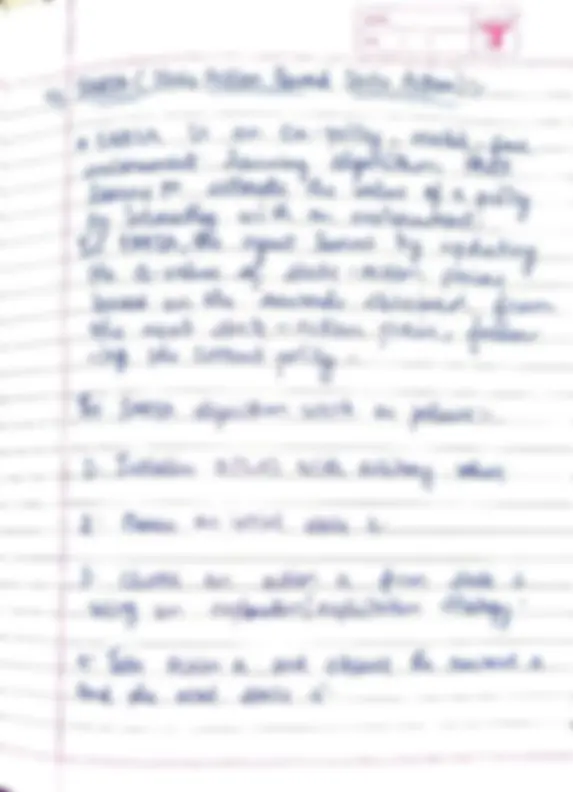 SARSA (State Action Reward State Action):-
• SARSA is an on-policy, model-free
learning algorithm that
the value of a policy
by interacting with an environment.
SARSA, the agent learns by updating
the Q-value of state-action pairs
based on the rewards from
the next state-action pair, follow
-ing the current policy.
SARSA algorithm work as follows:-
1. Initialize with arbitrary values
2. an initial state s.
3. Choose an action a from state s
using an exploration/exploitation strategy.
4. Take action a and observe the reward r
and the next state s'